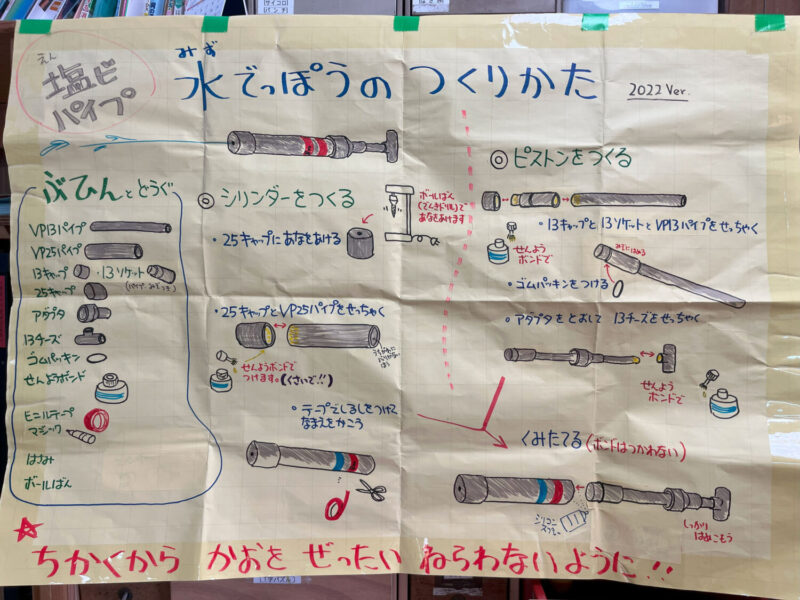 サイコロ
パンチ
えん
塩ビ
パイプ
みず
水でっぽうのつくりかた
2022 Ver.
ぶひんとどうぐ
VP13パイプ
VP25パイプ
13キャップ・13ソケット
(パイプ みぞつき)
25キャップ
アダプタ
13チーズ
ゴムパッキン
せんようボンド
ビニルテープ
マジック
はさみ
ボールばん
◎シリンダーをつくる
・25キャップにあなをあける
ボールばん
(でんきドリル)で
あなをあけます
・25キャップとVP25パイプをせっちゃく
せんようボンドで
つけます。(くさいで!!)
・テープでしるしをつけて
なまえをかこう
◎ピストンをつくる
・13キャップと13ソケットとVP13パイプをせっちゃく
せんよう
ボンドで
みぞにはめる
・ゴムパッキンをつける
・アダプタをとおして 13チーズをせっちゃく
せんよう
ボンドで
くみたてる(ボンドはつかわない)
シリコン
スプレー
しっかり
はめこもう
☆ちかくから かおを ぜったい ねらわないように!!